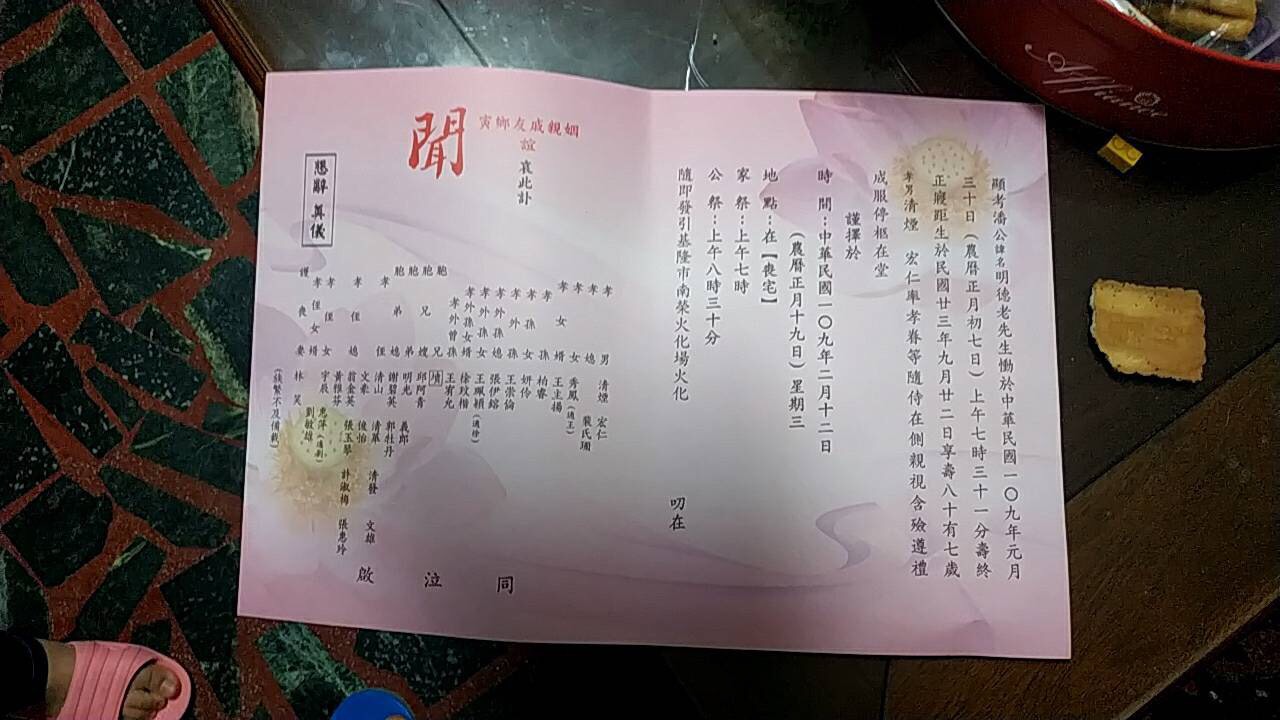 顯考潘公諱名明德老先生慟於中華民國一〇九年元月
三十日(農曆正月初七日)上午七時三十一分壽終
正寢距生於民國廿三年九月廿二日享壽八十有七歲
孝男清煙 宏仁率孝眷等隨侍在側親視含殮遵禮
成服停柩在堂
謹擇於
時 間：中華民國一〇九年二月十二日
(農曆正月十九日)星期三
地 點：在【喪宅】
家 祭：上午七時
公 祭：上午八時三十分
隨即發引基隆市南榮火化場火化
叨在
姻親戚友鄉寅
誼
哀此訃
聞
懇辭 奠儀
孝男 清煙 宏仁
孝媳 裴氏
孝女 秀鳳(適王)
孝婿 王主揚
孝孫 柏睿
孝孫女 妍伶
孝外孫 王崇倫
孝外孫媳 張伊鎔
孝外孫女 王珮穎(適徐)
孝外孫女婿 徐玟楷
孝外曾孫 王宥允
胞兄 義郎
胞嫂 邱阿青
胞弟 明光
胞弟媳 謝碧英 郭牡丹
孝侄 清山 清華 清發 文雄
文泰 俊怡
孝侄媳 翁金英 張玉琴 許淑梅 張惠玲
黃維芬
孝侄女 宇辰 惠萍(適劉)
孝侄女婿 劉敏雄
護喪妻 林
(族繁不及備載)
同 泣 啟
Affiance